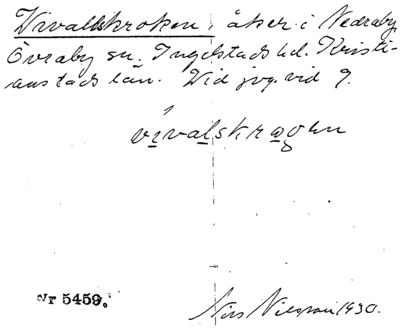 Wivallskroken, åker i Nedraby,
Övraby sn. Ingelstads hd. Kristi-
anstads län. Vid jvg. vid 9.
vi̱valskrogen
Nr 5459.
Nils Nilsson 1930.